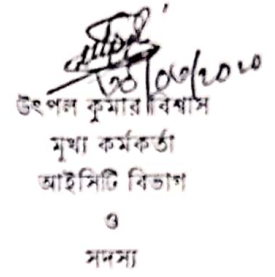 ৩০/০৬/২০২০
উৎপল কুমার বিশ্বাস
মুখ্য কর্মকর্তা
আইসিটি বিভাগ
ও
সদস্য